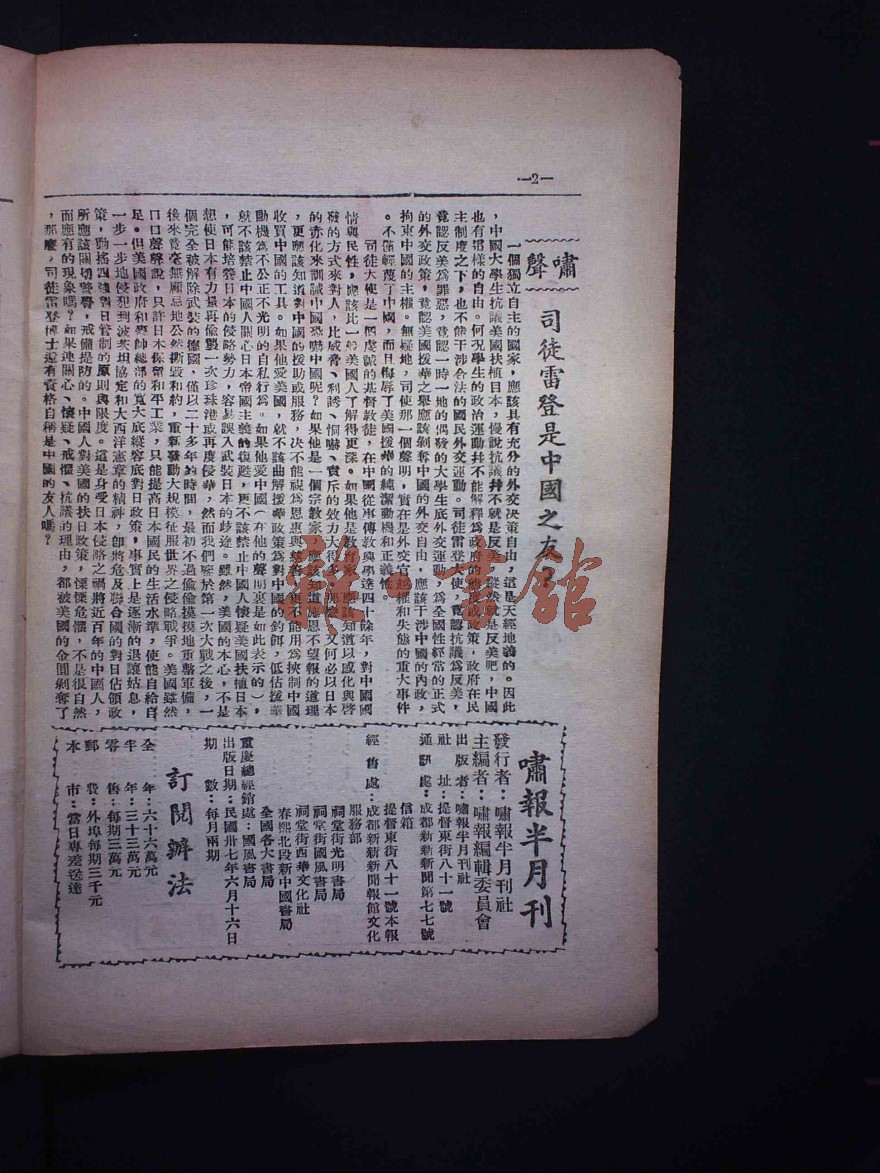 —2—
嘯聲
司徒雷登是中國之友？
一個獨立自主的國家，應該具有充分的外交决策自由，這是天經地義的。因此
，中國大學生抗議美國扶植日本，慢說抗議幷不就是反美，縱然就是反美吧，中國
也有這樣的自由。何況學生的政治運動幷不能解釋爲政府的態度或政策，政府在民
主制度之下，也不能干涉合法的國民外交運動。司徒雷登大使，竟認抗議爲反美，
竟認反美爲罪惡，竟認一時一地的偶發的大學生底外交運動，爲全國性經常的正式
的外交政策，竟認美國援華之舉應該剝奪中國的外交自由，應該干涉中國的內政，
拘束中國的主權。無疑地，司使那一個聲明，實在是外交官越權和失態的重大事件
。不僅輕蔑了中國，而且侮辱了美國援華的純潔動機和正義性
司徒大使是一個虔誠的基督教徒，在中國從事傳教與學達四十餘年，對中國國
情與民性，應該比一般美國人了解得更深。如果他是教育家，應該知道以感化與啓
發的方式來對人，比威脅、利誘、恫嚇、責斥的效力大得多，那麽，又何必以日本
的赤化來訓誡中國恐嚇中國呢？如果他是一個宗教家，應該知道施恩不望報的道理
，更應該知道對中國的援助或服務，决不能視爲恩惠與慈善，更不能用爲挾制中國
收買中國的工具。如果他愛美國，就不該曲解援華政策爲對中國的釣餌，低估援華
動機爲不公正不光明的自私行爲。如果他愛中國（在他的聲明裏是如此表示的），
就不該禁止中國人關心日本帝國主義的復甦，更不該禁止中國人懷疑美國扶植日本
，可能培養日本的侵略勢力，容易誤入武裝日本的歧途。雖然，美國的本心，不是
想使日本有力量再偷襲一次珍珠港或再度侵華，然而我們鑒於第一次大戰之後，一
個完全被解除武裝的德國，僅以二十多年的時間，最初不過偷偷摸摸地重整軍備，
後來竟毫無顧忌地公然撕毀和約，重新發動大規模征服世界之侵略戰爭。美國雖然
口口聲聲說，只許日本保留和平工業，只能提高日本國民的生活水準，使能自給自
足。但美國政府和麥帥總部的寬大底縱容底對日政策，事實上是逐漸的退讓姑息，
一步一步地侵犯到波茨坦協定和大西洋憲章的精神，卽將危及聯合國的對日佔領政
策，動搖四強對日管制的原則與限度。這是身受日本侵略之禍將近百年的中國人，
所應該關切警覺，戒備提防的。中國人對美國的扶日政策，慄慄危懼，不是很自然
而應有的現象嗎？如果連關心、懷疑、戒懼、抗議的理由，都被美國的金圓剝奪了
，那麽，司徒雷登博士還有資格自稱是中國的友人嗎？
嘯報半月刊
發行者：嘯報半月刊社
主編者：嘯報編輯委員會
出版者：嘯報半月刊社
社　址：提督東街八十一號
通訊處：成都新新新聞第七七號
信箱
提督東街八十一號本報
經售處：成都新新新聞報館文化
服務部
祠堂街光明書局
祠堂街國風書局
祠堂街西華文化社
春熙北段新中國書局
全國各大書局
重慶總經銷處：國風書局
出版日期：民國卅七年六月十六日
期　數：每月兩期
訂閱辦法
全　年：六十六萬元
半　年：三十三萬元
零　售：每期三萬元
郵　費：外埠每期三千元
本　市：當日專差送達